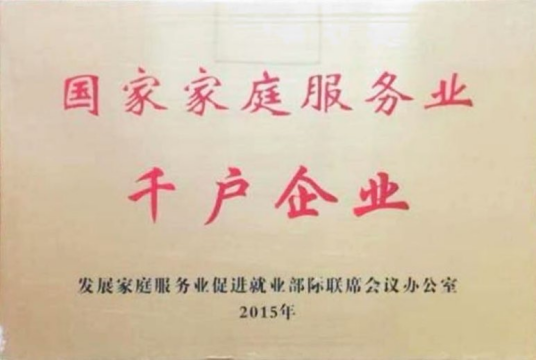 国家家庭服务业
千户企业
发展家庭服务业促进就业部际联席会议办公室
2015年